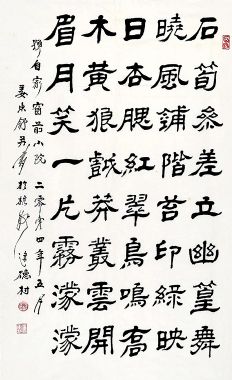 石筍參差立幽篁舞
曉風鋪階苔印綠映
日杏腮紅翠鳥鳴高
木黃狼戲莽叢雲開
眉月笑一片霧濛濛
題自家窗前小院 二零零四年五月
姜東舒